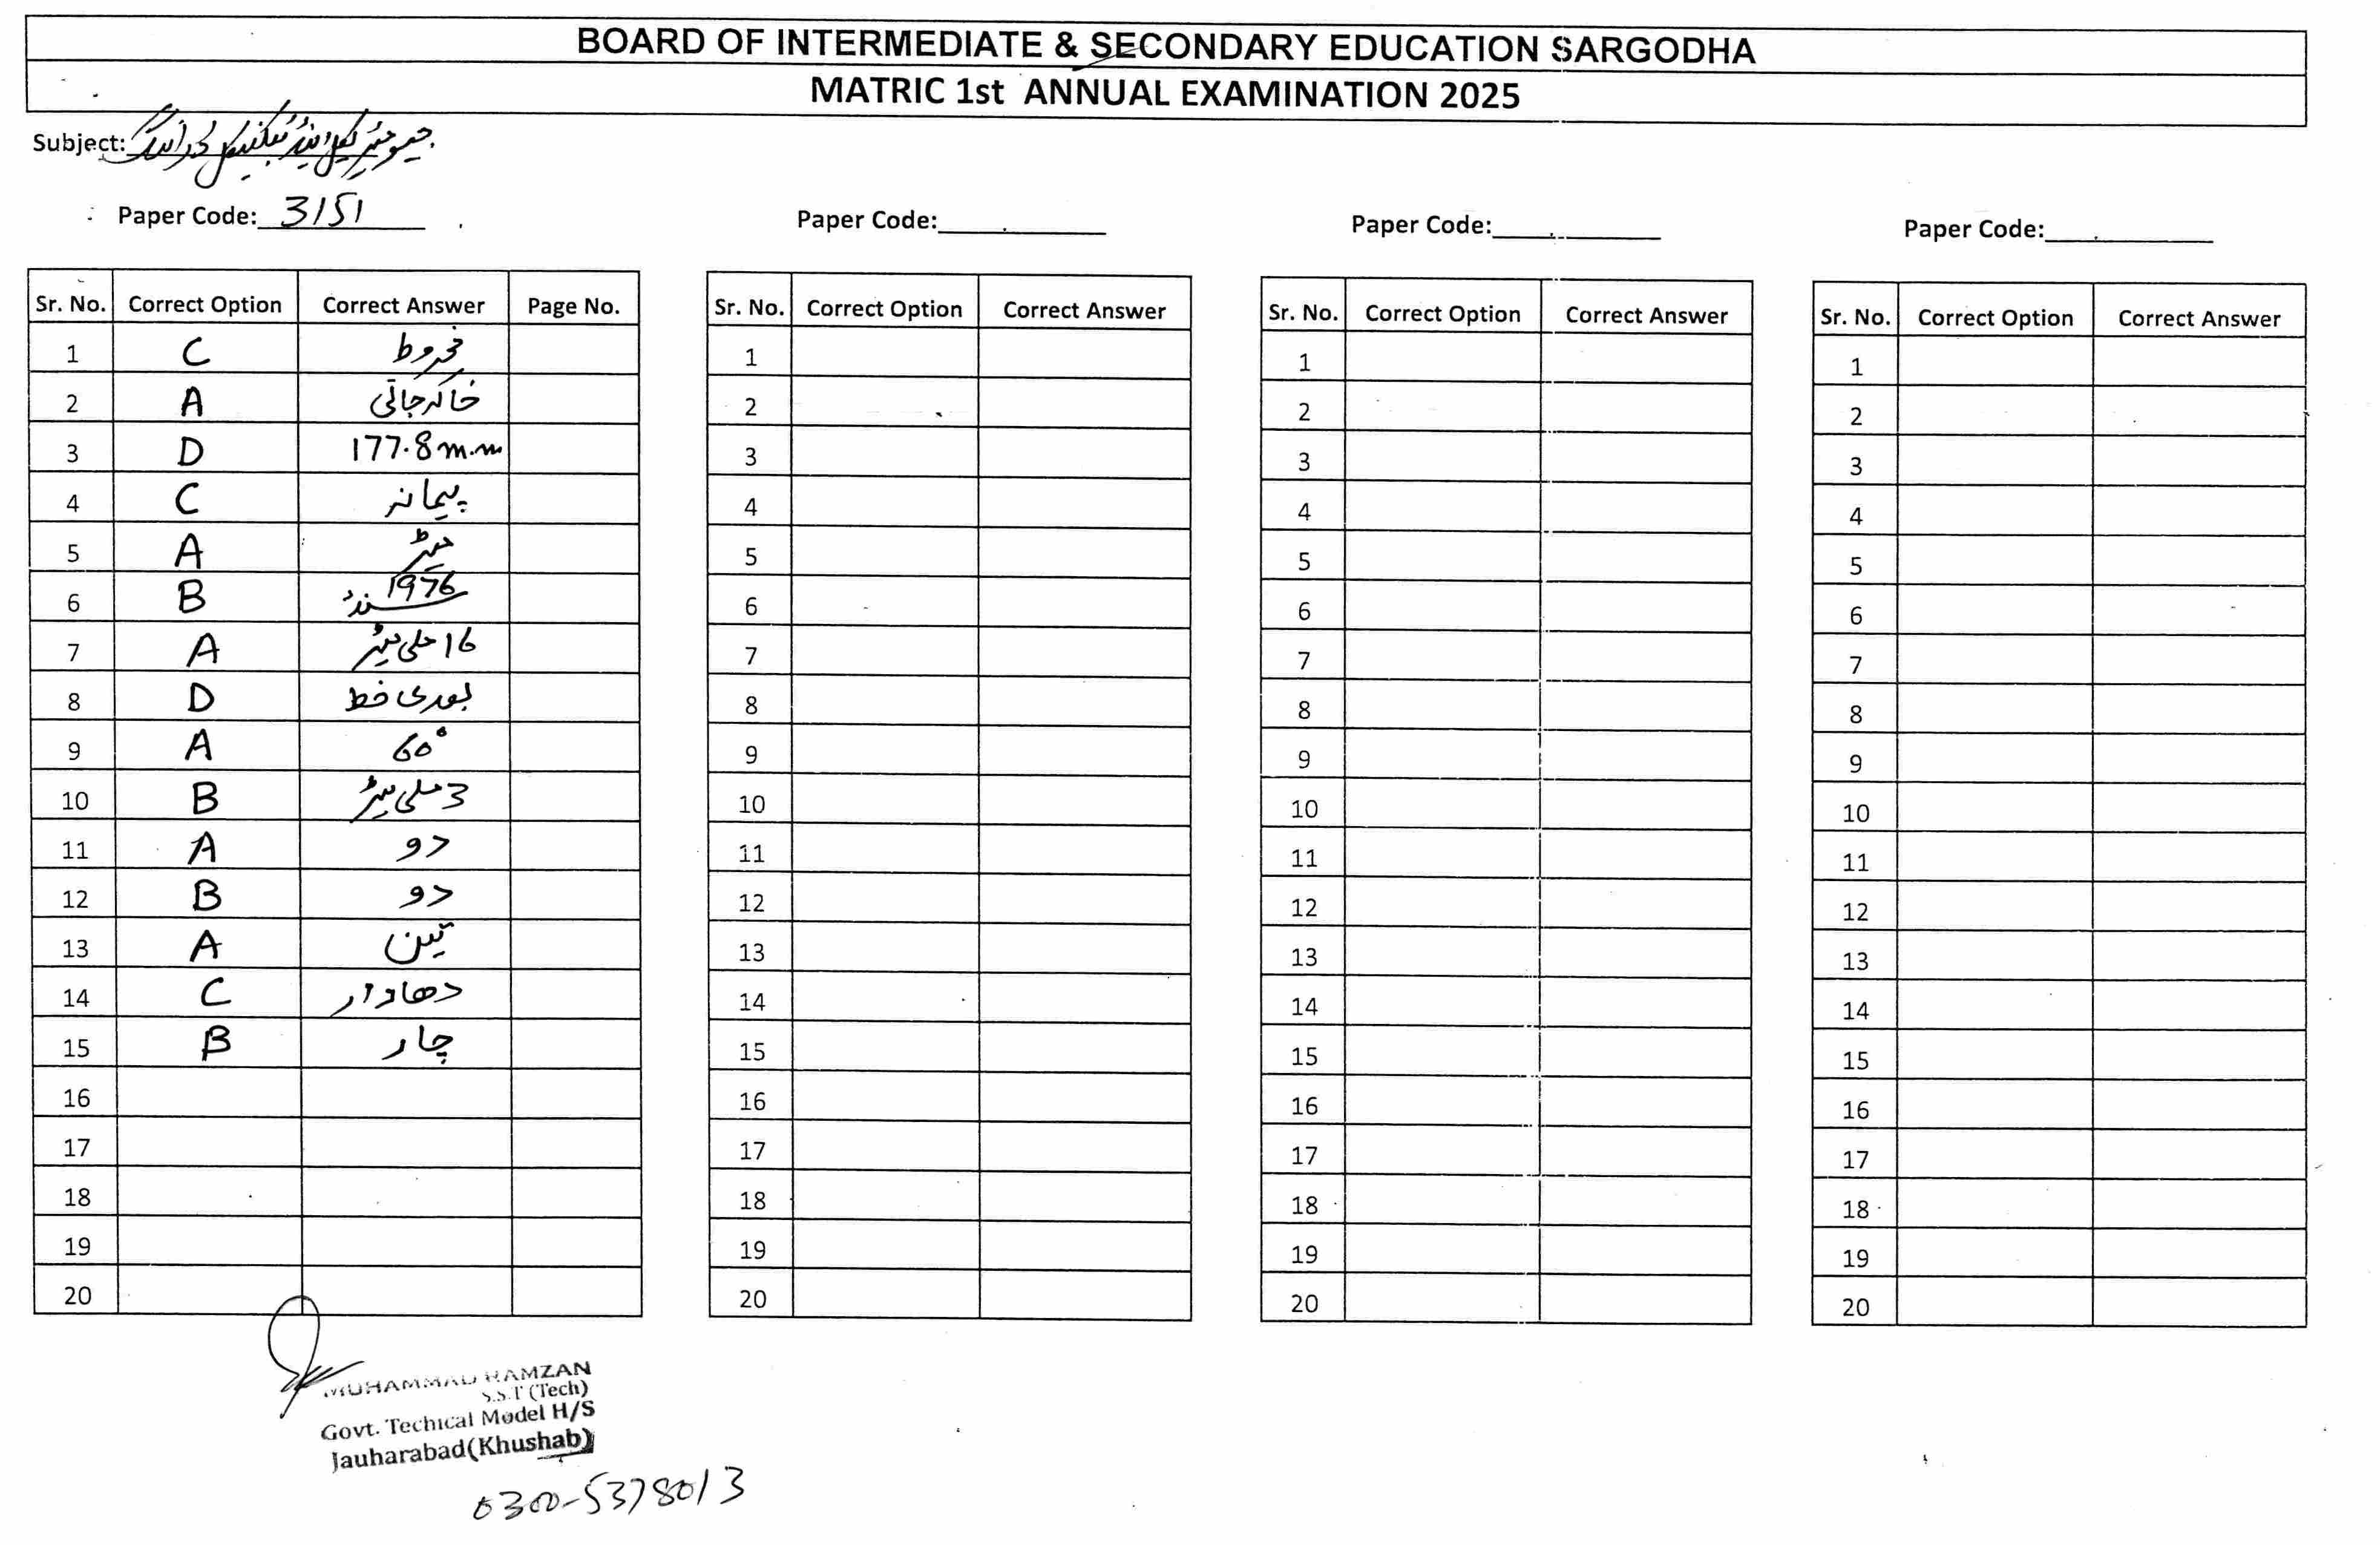 BOARD OF INTERMEDIATE & SECONDARY EDUCATION SARGODHA
MATRIC 1st ANNUAL EXAMINATION 2025
Subject: جیومیٹریکل اینڈ ٹیکنیکل ڈرائنگ
Paper Code: 3151
Paper Code:
Paper Code:
Paper Code:
Sr. No. Correct Option Correct Answer Page No.
1 C مخروط
2 A خاکہ جاتی
3 D 177.8 m.m
4 C پیمانہ
5 A میٹر
6 B 1976
7 A 16 ملی میٹر
8 D بعدی خط
9 A 60°
10 B 3 ملی میٹر
11 A دو
12 B دو
13 A تین
14 C دھاودار
15 B چار
16
17
18
19
20
Sr. No. Correct Option Correct Answer
1
2
3
4
5
6
7
8
9
10
11
12
13
14
15
16
17
18
19
20
Sr. No. Correct Option Correct Answer
1
2
3
4
5
6
7
8
9
10
11
12
13
14
15
16
17
18
19
20
Sr. No. Correct Option Correct Answer
1
2
3
4
5
6
7
8
9
10
11
12
13
14
15
16
17
18
19
20
MUHAMMAD RAMZAN
S.S.T (Tech)
Govt. Techical Model H/S
Jauharabad(Khushab)
0300-5378013